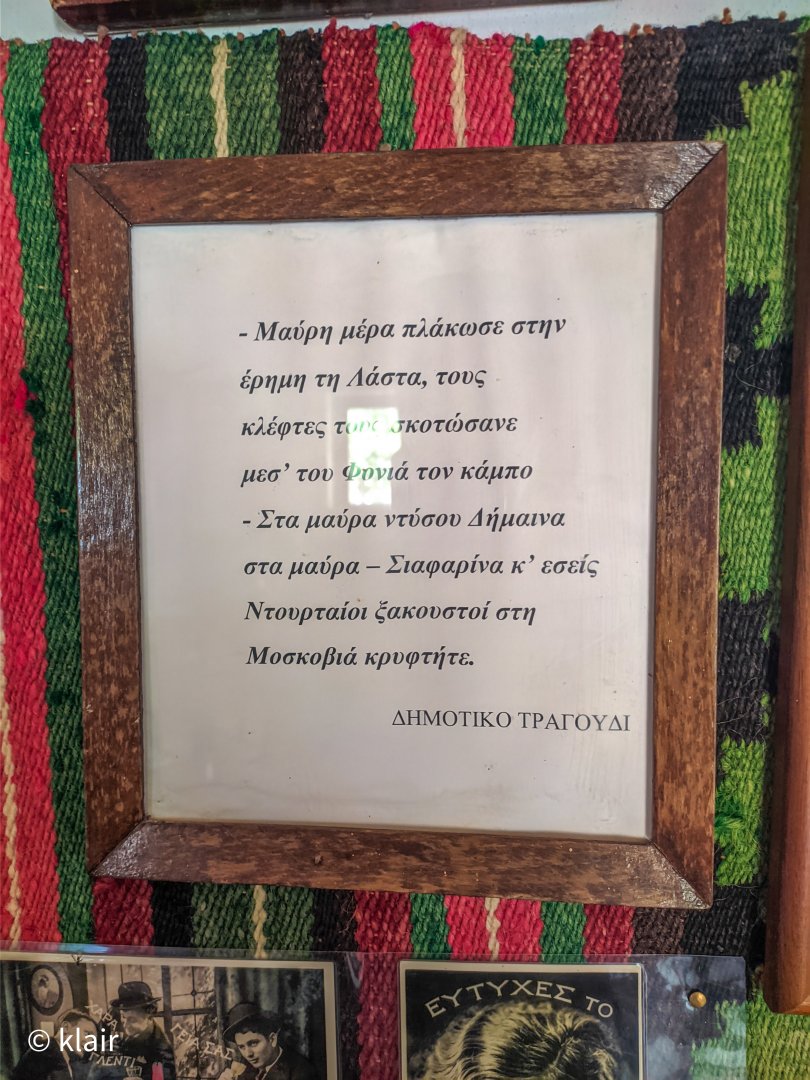 - Μαύρη μέρα πλάκωσε στην
έρημη τη Λάστα, τους
κλέφτες τους σκοτώσανε
μεσ’ του Φονιά τον κάμπο
- Στα μαύρα ντύσου Δήμαινα
στα μαύρα – Σιαφαρίνα κ’ εσείς
Ντουρταίοι ξακουστοί στη
Μοσκοβιά κρυφτήτε.
ΔΗΜΟΤΙΚΟ ΤΡΑΓΟΥΔΙ
ΧΑΡΑ
ΓΛΕΝΤΙ
ΓΕΙΑ ΣΑΣ
ΕΥΤΥΧΕΣ ΤΟ
© klair